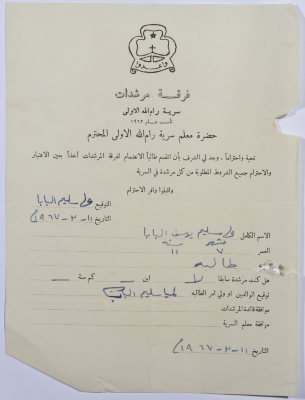 وأعدوا
فرقة مرشدات
سرية رام الله الاولى
تأسست عام ١٩٦٣
حضرة معلم سرية رام الله الاولى المحترم
تحية واحتراماً، وبعد لي الشرف بأن اتقدم طالباً الانضمام لفرقة المرشدات آخذاً بعين الاعتبار
والاحترام جميع الشروط المطلوبة من كل مرشدة في السرية
واقبلوا وافر الاحترام
التوقيع سليم البابا
التاريخ ١١-٢-١٩٦٧م
الاسم الكامل سليم يوسف البابا
العمر ٧ شهر ١١ سنة
طالبه
هل كنت مرشدة سابقا لا اين – كم سنة –
توقيع الوالدين او ولي امر الطالبه سليم البابا
موافقة قائدة المرشدات
موافقة معلم السرية
التاريخ ١١-٢-١٩٦٧م